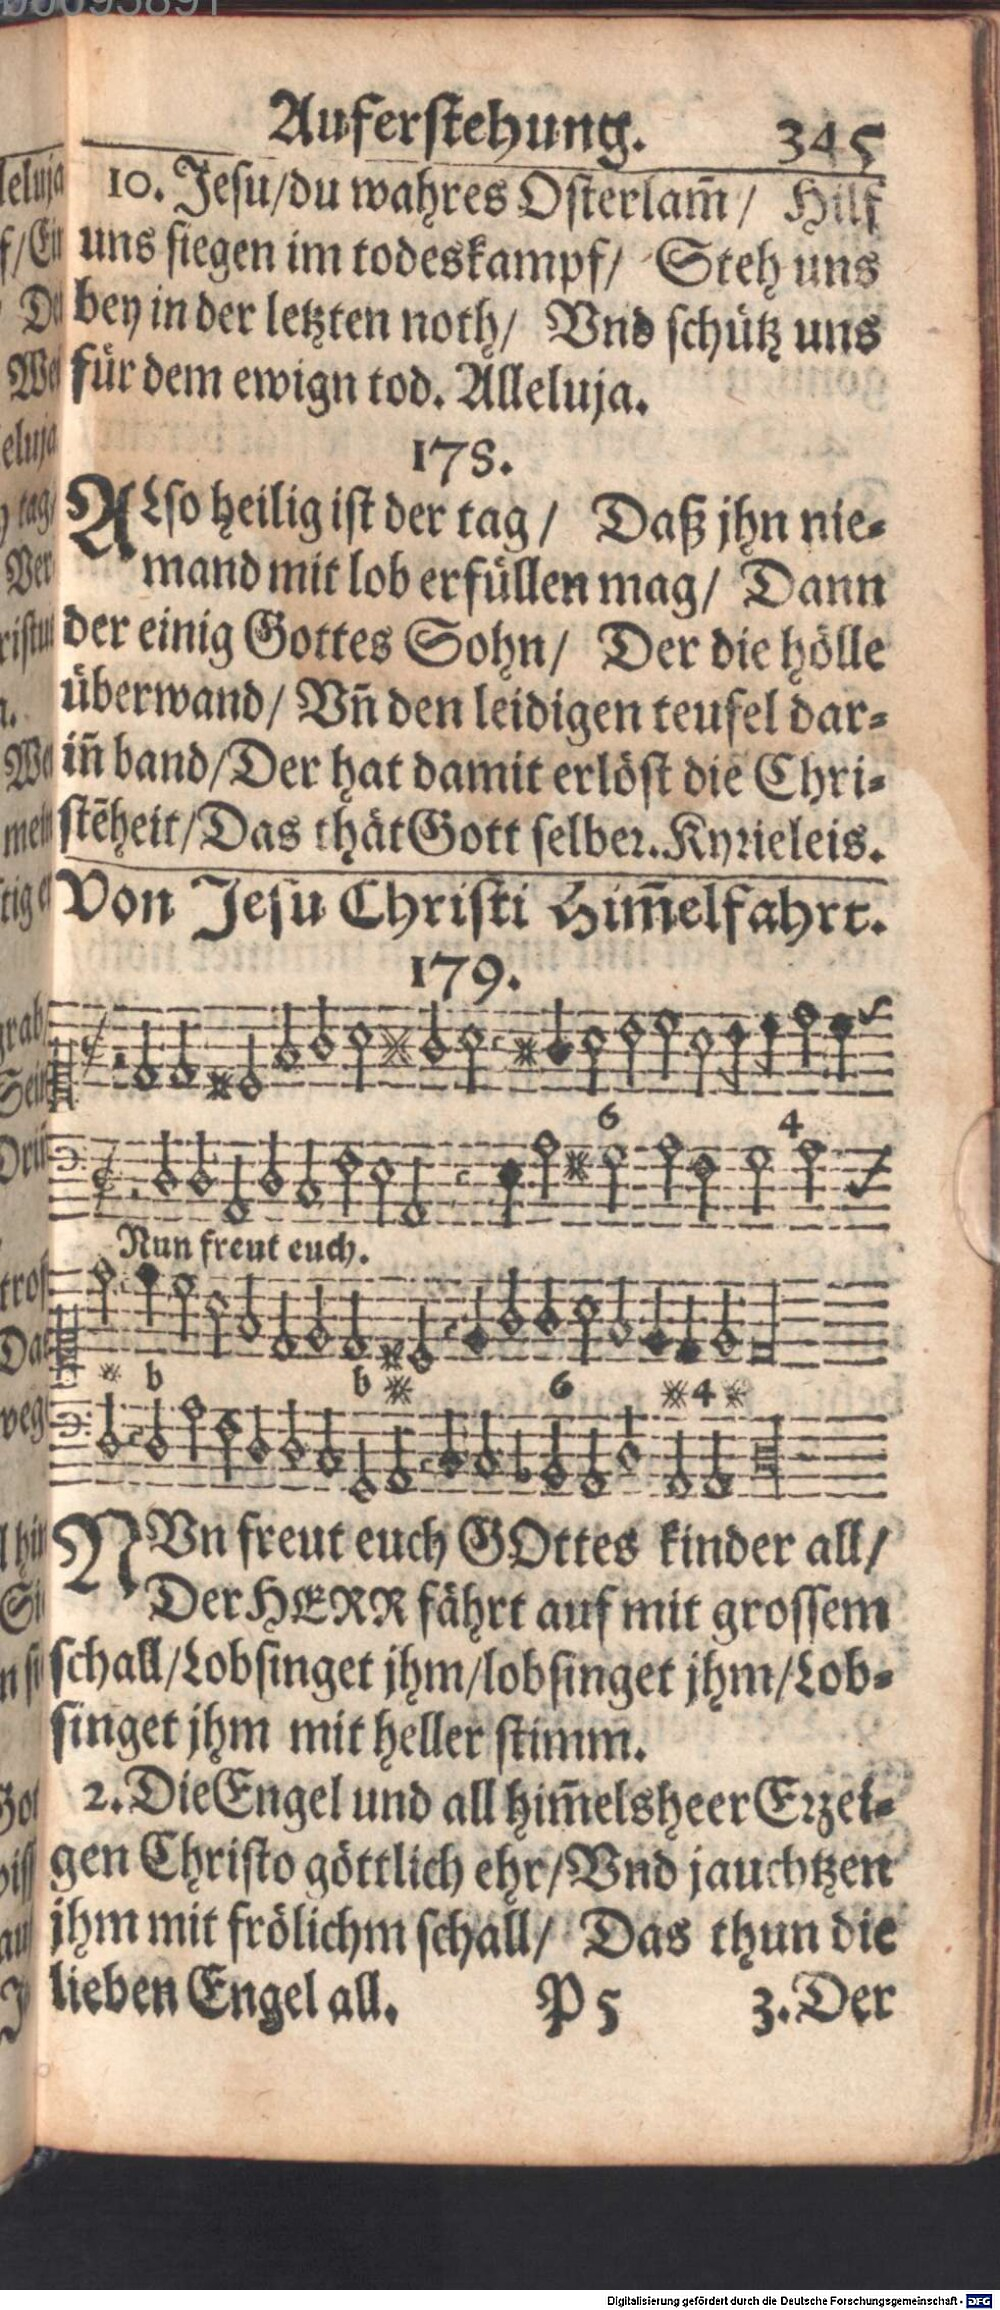 Auferstehung. 345
10. Jesu/du wahres Osterlam̃/ Hilf
uns siegen im todeskampf/ Steh uns
bey in der letzten noth/ Vnd schütz uns
für dem ewign tod. Alleluja.
178.
ALso heilig ist der tag/ Daß jhn nie-
mand mit lob erfüllen mag/ Dann
der einig Gottes Sohn/ Der die hölle
überwand/ Vñ den leidigen teufel dar-
iñ band/Der hat damit erlöst die Chri-
stẽheit/Das thät Gott selber. Kyrieleis.
Von Jesu Christi Him̃elfahrt.
179.
6 4
Nun freut euch.
b b 6 4
NVn freut euch GOttes kinder all/
Der HERR fährt auf mit grossem
schall/Lobsinget jhm/lobsinget jhm/Lob-
singet jhm mit heller stimm.
2. Die Engel und all him̃elsheer Erzei-
gen Christo göttlich ehr/Vnd jauchtzen
jhm mit frölichm schall/ Das thun die
lieben Engel all. P 5 3. Der
Digitalisierung gefördert durch die Deutsche Forschungsgemeinschaft - DFG